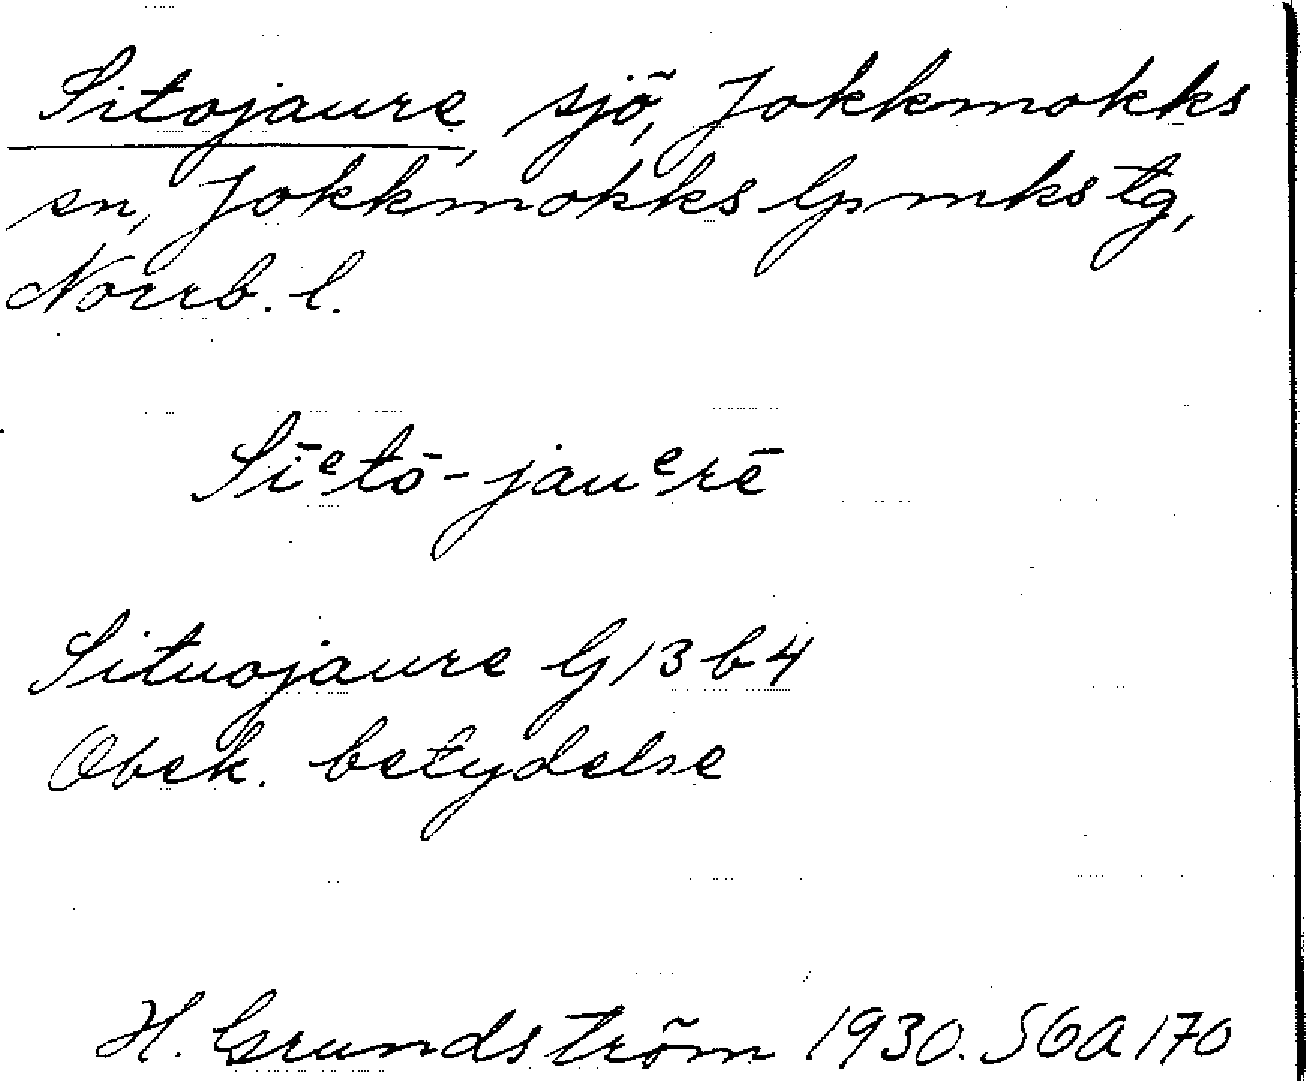 Sitojaure, sjö, Jokkmokks
sn, Jokkmokks lpmkstg,
Norrb. l.
Sīᵉtō-jauᵉrē
Situojaure G 13 b 4
Obek. betydelse
H. Grundström 1930. SGA 170